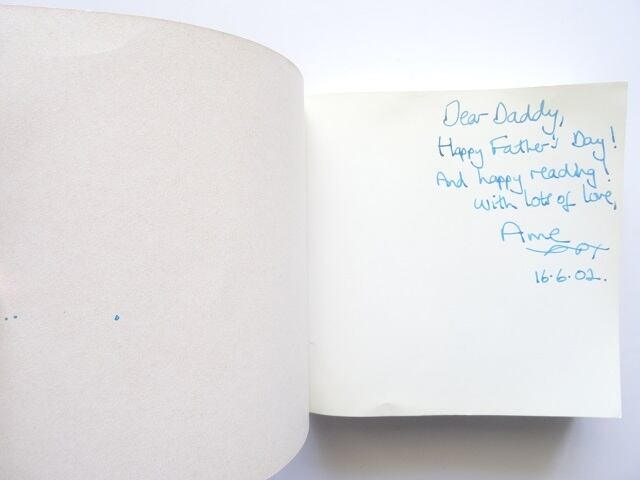 Dear Daddy,
Happy Father's Day!
And happy reading!
with lots of love,
Anne
16.6.02.